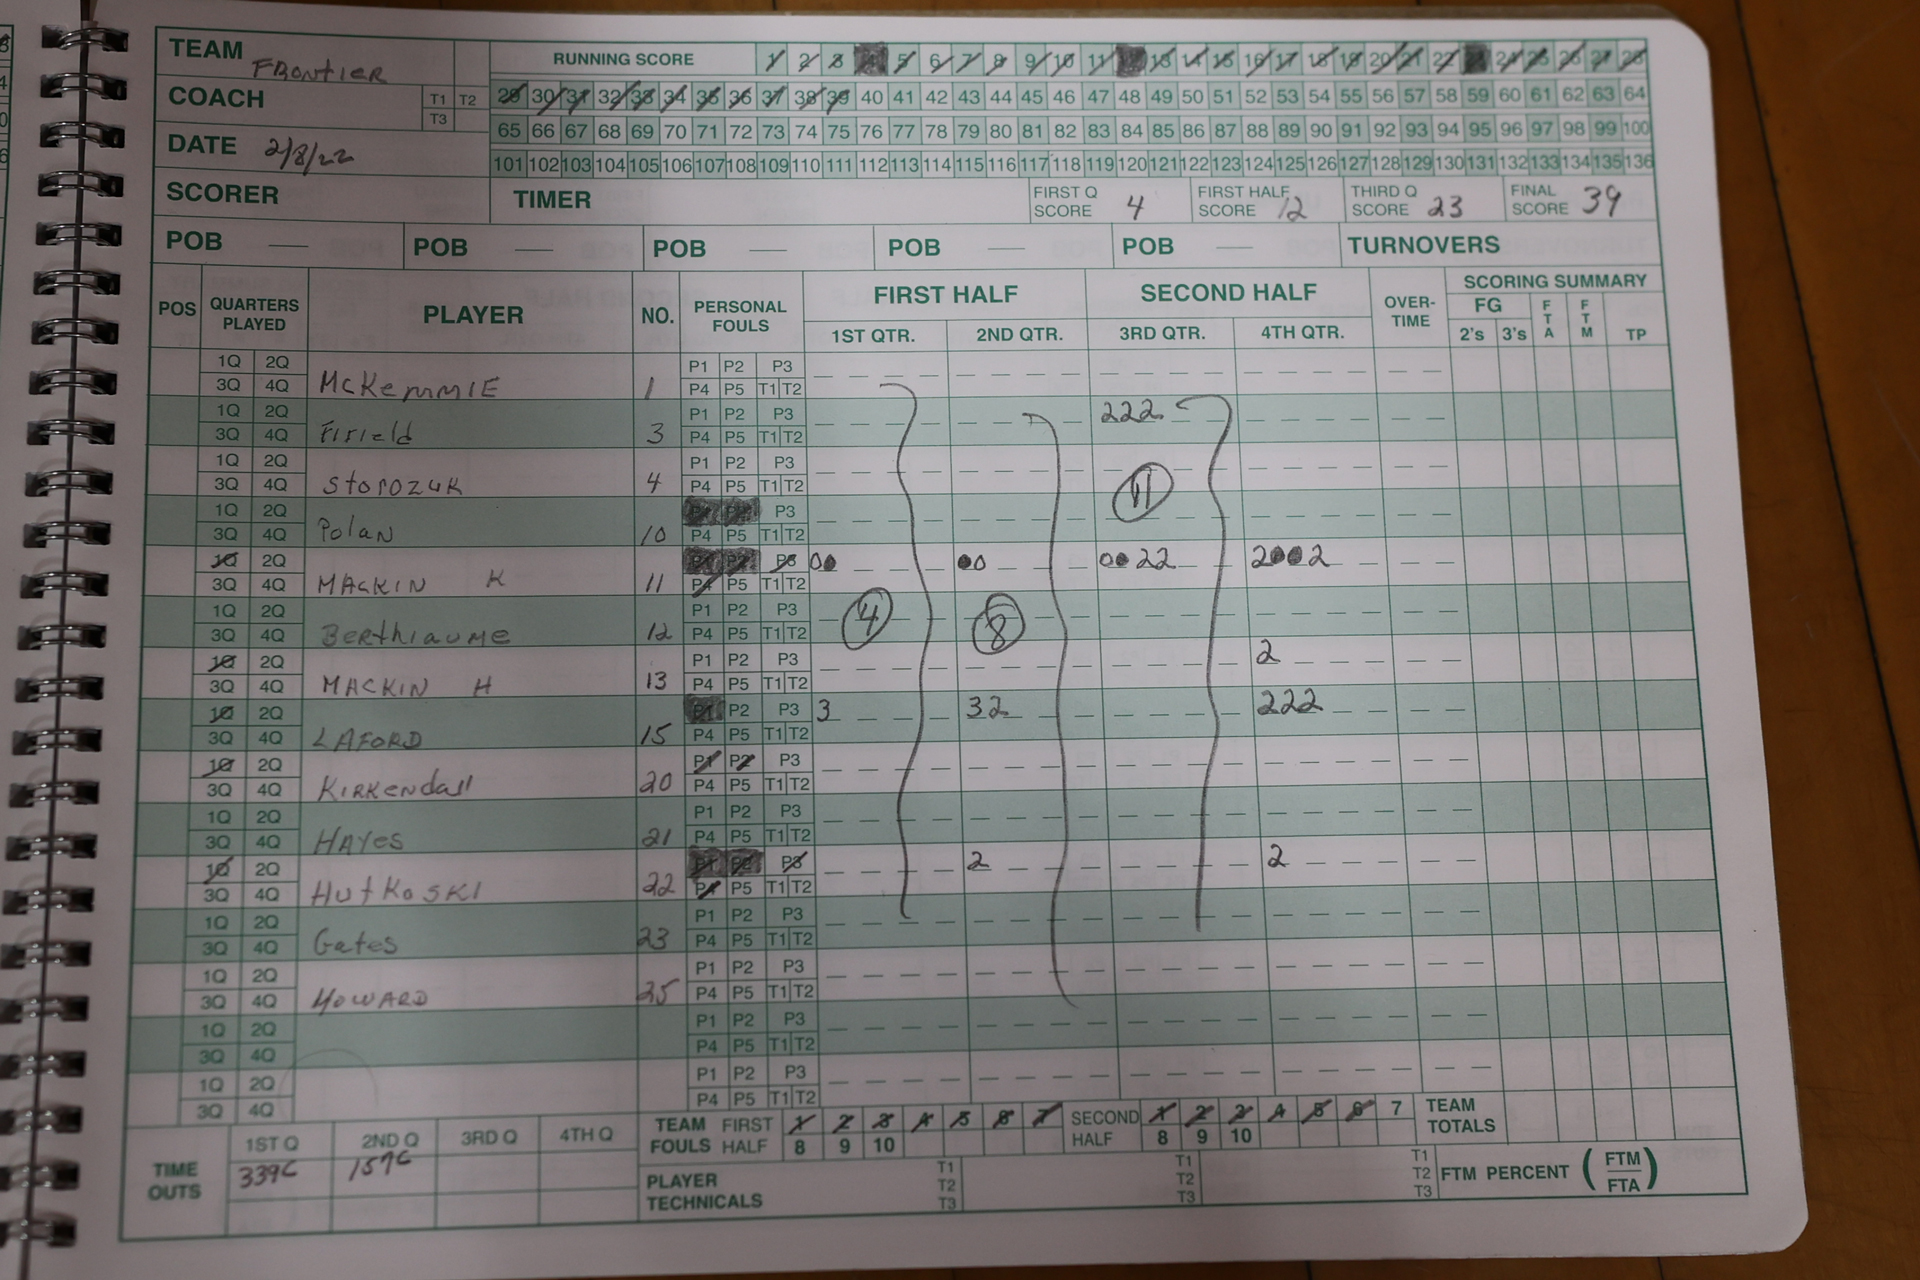 TEAM Frontier RUNNING SCORE 1 2 3 4 5 6 7 8 9 10 11 12 13 14 15 16 17 18 19 20 21 22 23 24 25 26 27 28
COACH T1 T2 T3 29 30 31 32 33 34 35 36 37 38 39 40 41 42 43 44 45 46 47 48 49 50 51 52 53 54 55 56 57 58 59 60 61 62 63 64
65 66 67 68 69 70 71 72 73 74 75 76 77 78 79 80 81 82 83 84 85 86 87 88 89 90 91 92 93 94 95 96 97 98 99 100
DATE 2/8/22 101 102 103 104 105 106 107 108 109 110 111 112 113 114 115 116 117 118 119 120 121 122 123 124 125 126 127 128 129 130 131 132 133 134 135 136
SCORER TIMER FIRST Q SCORE 4 FIRST HALF SCORE 12 THIRD Q SCORE 23 FINAL SCORE 39
POB POB POB POB POB TURNOVERS
POS QUARTERS PLAYED PLAYER NO. PERSONAL FOULS FIRST HALF SECOND HALF OVER-TIME SCORING SUMMARY
1ST QTR. 2ND QTR. 3RD QTR. 4TH QTR. FG 2's 3's FTA FTM TP
1Q 2Q P1 P2 P3
3Q 4Q McKemmIE 1 P4 P5 T1 T2
1Q 2Q P1 P2 P3 222
3Q 4Q Firield 3 P4 P5 T1 T2
1Q 2Q P1 P2 P3
3Q 4Q Storozuk 4 P4 P5 T1 T2 11
1Q 2Q P1 P2 P3
3Q 4Q Polan 10 P4 P5 T1 T2
1Q 2Q P1 P2 P3 00 00 0022 2002
3Q 4Q MACKIN K 11 P4 P5 T1 T2
1Q 2Q P1 P2 P3 4 8
3Q 4Q BerthiaumE 12 P4 P5 T1 T2
1Q 2Q P1 P2 P3 2
3Q 4Q MACKIN H 13 P4 P5 T1 T2
1Q 2Q P1 P2 P3 3 32 222
3Q 4Q LAFORD 15 P4 P5 T1 T2
1Q 2Q P1 P2 P3
3Q 4Q KIRKendall 20 P4 P5 T1 T2
1Q 2Q P1 P2 P3
3Q 4Q HAYes 21 P4 P5 T1 T2
1Q 2Q P1 P2 P3 2 2
3Q 4Q HutKoSKI 22 P4 P5 T1 T2
1Q 2Q P1 P2 P3
3Q 4Q Gates 23 P4 P5 T1 T2
1Q 2Q P1 P2 P3
3Q 4Q HOWARD 25 P4 P5 T1 T2
1Q 2Q P1 P2 P3
3Q 4Q P4 P5 T1 T2
1Q 2Q P1 P2 P3
3Q 4Q P4 P5 T1 T2
TEAM FOULS FIRST HALF 1 2 3 4 5 6 7 8 9 10 SECOND HALF 1 2 3 4 5 6 7 8 9 10 TEAM TOTALS
TIME OUTS 1ST Q 2ND Q 3RD Q 4TH Q
339C 157C
PLAYER TECHNICALS T1 T2 T3 T1 T2 T3 T1 T2 T3 FTM PERCENT (FTM/FTA)